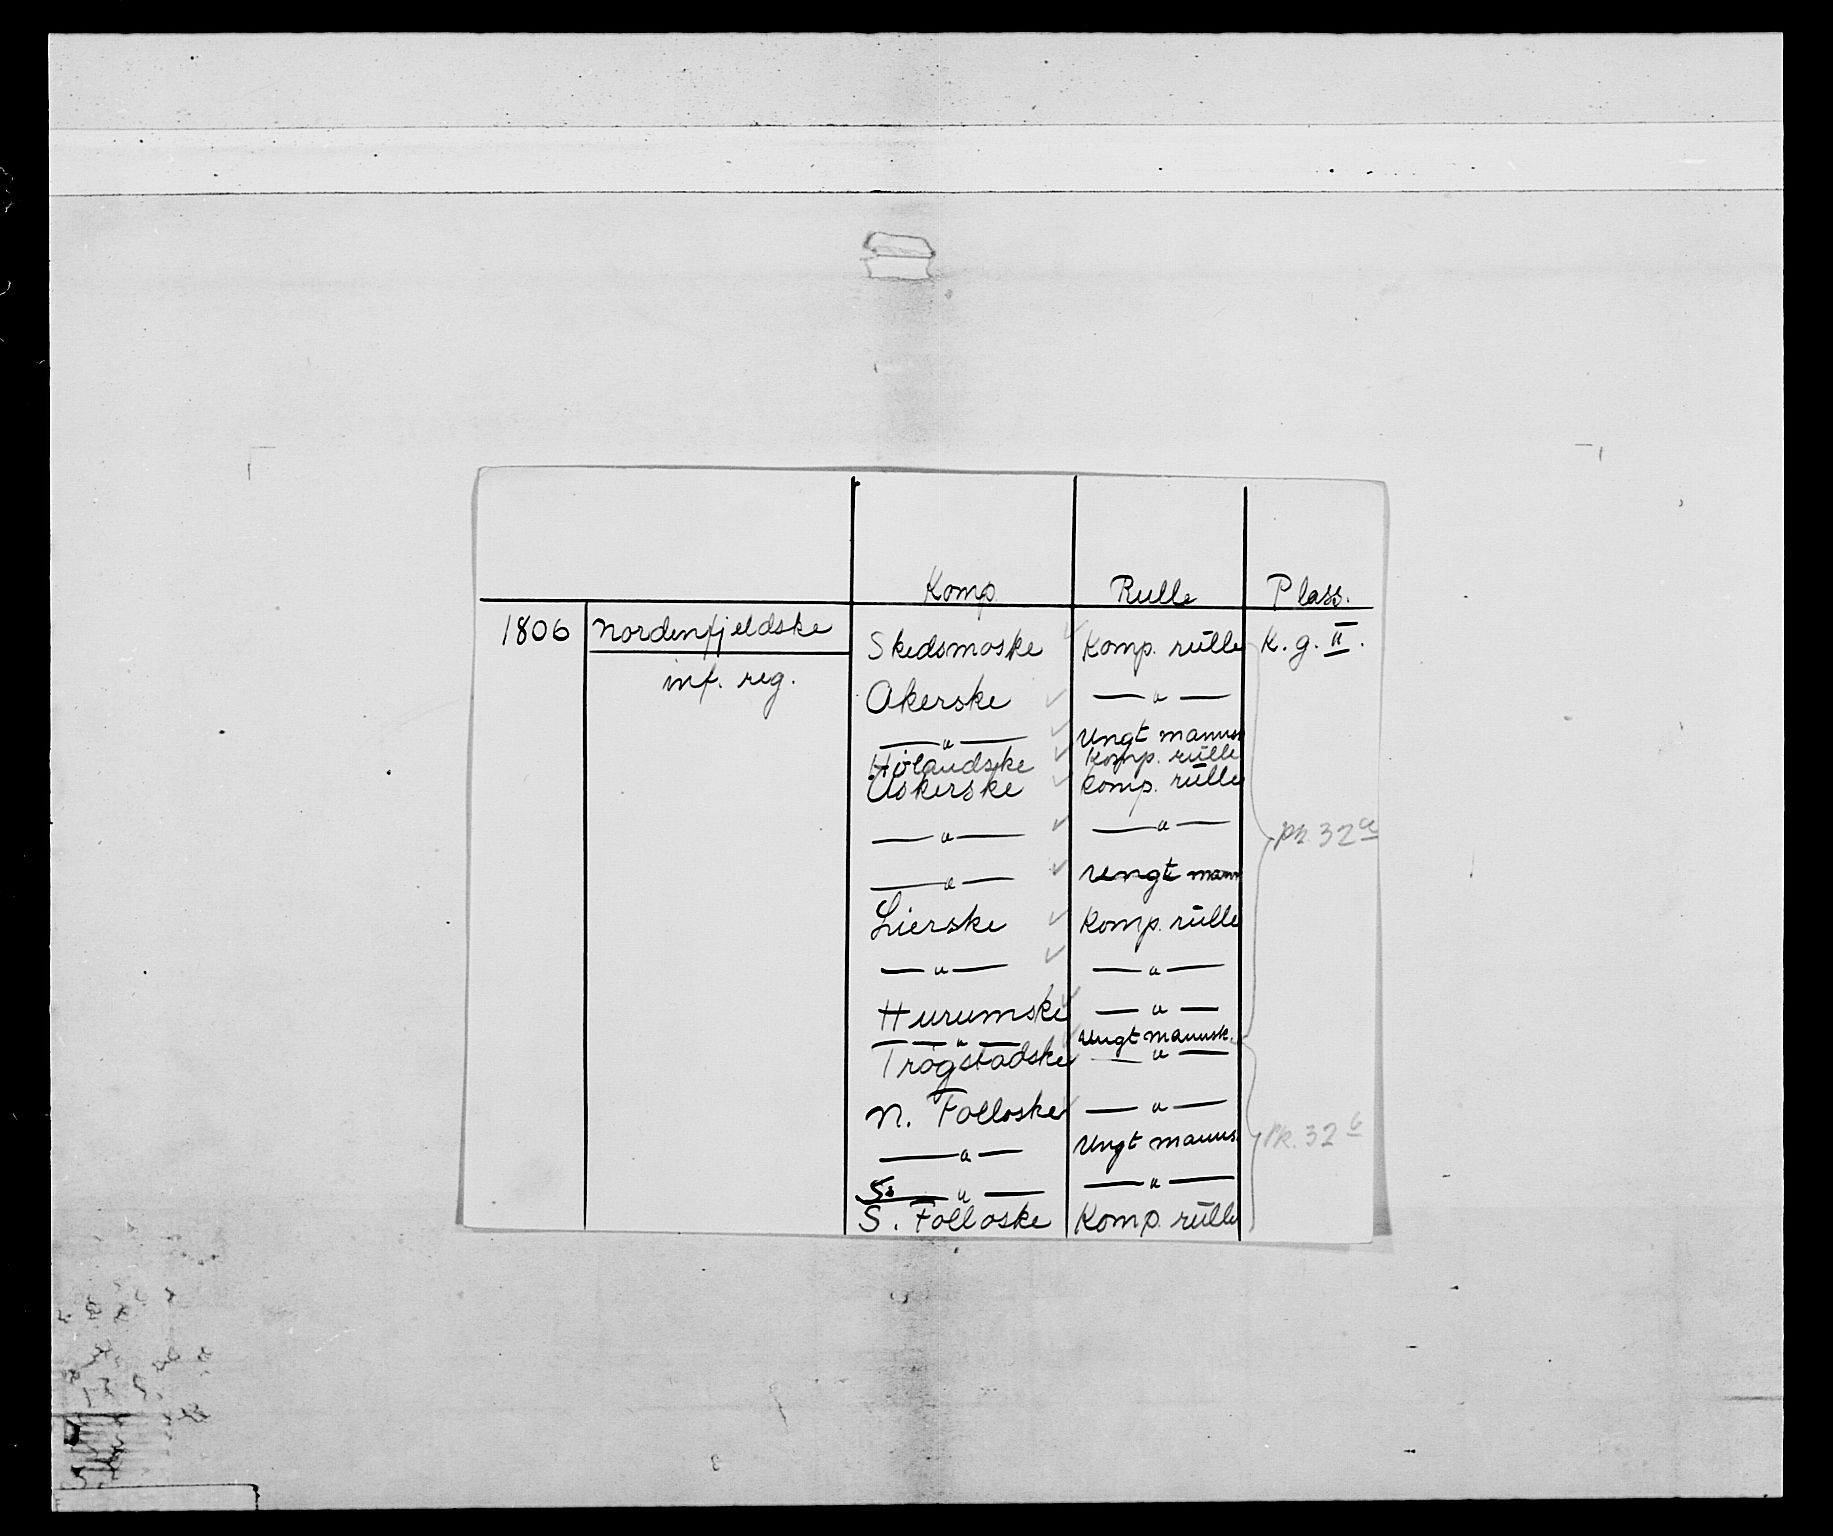 Komp. Rulle Plass.
1806 Nordenfjeldske Skedsmoske Komp. rulle K. g. II.
inf. reg.
Akerske — " —
— " — Ungt mannsk
Hølandske Komp. rulle
Askerske Komp. rulle
— " — — " —
— " — Ungt mann
Lierske Komp. rulle
— " — — " —
Hurumske — " —
— " — Ungt mannsk.
Trøgstadske — " —
N. Folloske — " —
— " — Ungt manns.
S. — " — — " —
S. Folloske Komp. rulle
pk. 32 a
Pk. 32 b